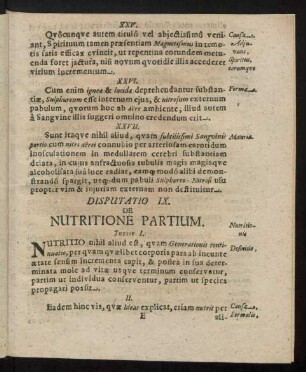 XXV.
Qvocunqve autem titulô vel abjectissimô veni-
ant, Spirituum tamen præsentiam Magnetismus in remo-
tis satis efficax evincit, ut repentina eorundem metu-
enda foret jactura, nisi novum qvotidie illis accederet
virium incrementum.
Causa
Adju-
vans,
spiritus,
eorumque
XXVI.
Cum enim ignea & lucida deprehendantur substan-
tiæ, Sulphureum esse internum ejus, & nitrosum externum
pabulum, qvorum hoc ab aëre ambiente, illud autem
à Sangvine illis suggeri omnino credendum erit.
Forma
XXVII.
Sunt itaqve nihil aliud, qvam subtilissimi Sangvinis
partes cum nitri aërei connubio per arteriosam carotidum
inosculationem in medullarem cerebri substantiam
delata, in cujus anfractuosis tubulis magis magisqve
alcoholisata sui luce radiat, eamqve modô alibi demon-
strandô spargit, usqvedum pabuli Sulphureo-Nitrosi usu
propter vim & injuriam externam non destituitur.
Materia
DISPUTATIO IX.
DE
NUTRITIONE PARTIUM.
Thesis I.
Nutritio nihil aliud est, qvam Generationis conti-
nuatio, per qvam qvælibet corporis pars ab ineunte
ætate sensim incrementa capit, & postea in sua deter-
minata mole ad vitæ usqve terminum conservatur,
partim ut individua conserventur, partim ut species
propagari possit.
Nutritio-
nis
Definitio.
II.
Eadem hinc vis, qvæ Ideas explicat, etiam nutrit per
Causa
Formalis.
E